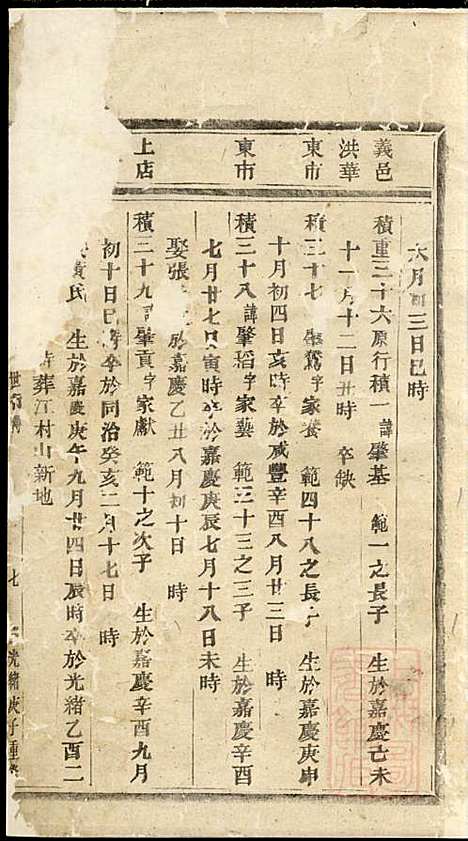 義邑
洪華
東市
東市
上店
六月初三日巳時
積重三十六原行積一諱肇基 範一之長子 生於嘉慶亡未
十一月十二日丑時 卒缺
積三十七 肇鴛字家養 範四十八之長子 生於嘉慶庚申
十月初四日亥時卒於咸豐辛酉八月廿三日 時
積三十八諱肇稻字家藝 範三十三之三子 生於嘉慶辛酉
七月廿七日寅時卒於嘉慶庚辰七月十八日未時
娶張 於嘉慶乙丑八月初十日 時
積三十九諱肇貢字家獻 範十之次子 生於嘉慶辛酉九月
初十日巳時卒於同治癸亥二月十七日 時
黄氏 生於嘉慶庚午九月廿四日辰時卒於光緒乙酉二
時葬江村山新地
世
七
光緒庚子重